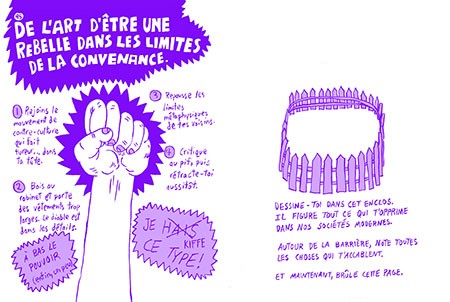 DE L'ART D'ÊTRE UNE
REBELLE DANS LES LIMITES
DE LA CONVENANCE.
① Rejoins le
mouvement de
contre-culture
qui fait
fureur... dans
Ta tête.
② Bois au
robinet et porte
des vêtements trop
larges. Le diable est
dans les détails.
À BAS LE
POUVOIR
(enfin, un peu)
③ Repousse les
limites
métaphysiques
de tes voisins.
④ Critique
au pif, puis
rétracte-toi
aussitôt.
JE HAIS
KIFFE
CE TYPE!
DESSINE-TOI DANS CET ENCLOS.
IL FIGURE TOUT CE QUI T'OPPRIME
DANS NOS SOCIÉTÉS MODERNES.
AUTOUR DE LA BARRIÈRE, NOTE TOUTES
LES CHOSES QUI T'ACCABLENT.
ET MAINTENANT, BRÛLE CETTE PAGE.